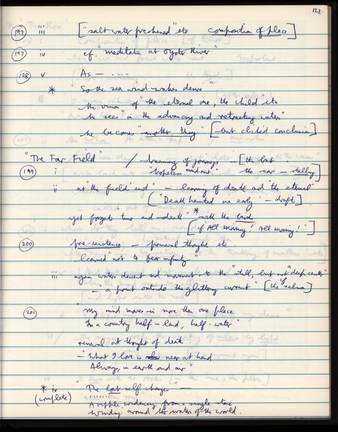 122
(197) iii ["salt water freshened" etc composition of place]
(197) iv cf "Meditation at Oyster River"
(198) v As — ....
* So the sea wind wakes desire
the vision of "the eternal one, the child, etc
he sees in the advancing and retreating water"
he becomes another thing [— but clichéd conclusion]
"The Far Field" / — dreaming of journeys — [the bat
(199) i the car — stalling]
ii at the field's end — learning of death and the eternal"
("Death haunted me early" — draft)
yet forgets time and death * with the bird
[cf All morning! All morning!"]
(200) pre-existence — primeval thought etc
learned not to fear infinity"
iii again water descent and movement to the "still, but not deep center"
— a point outside the glittering current" [the calm]
(201) "my mind moves in more than one place
In a country half-land, half-water"
renewal at thought of death
— What I love is near at hand
Always, in earth and air"
* iv The lost self changes —
(complete) A ripple widening from a single stone
Winding around the waters of the world.